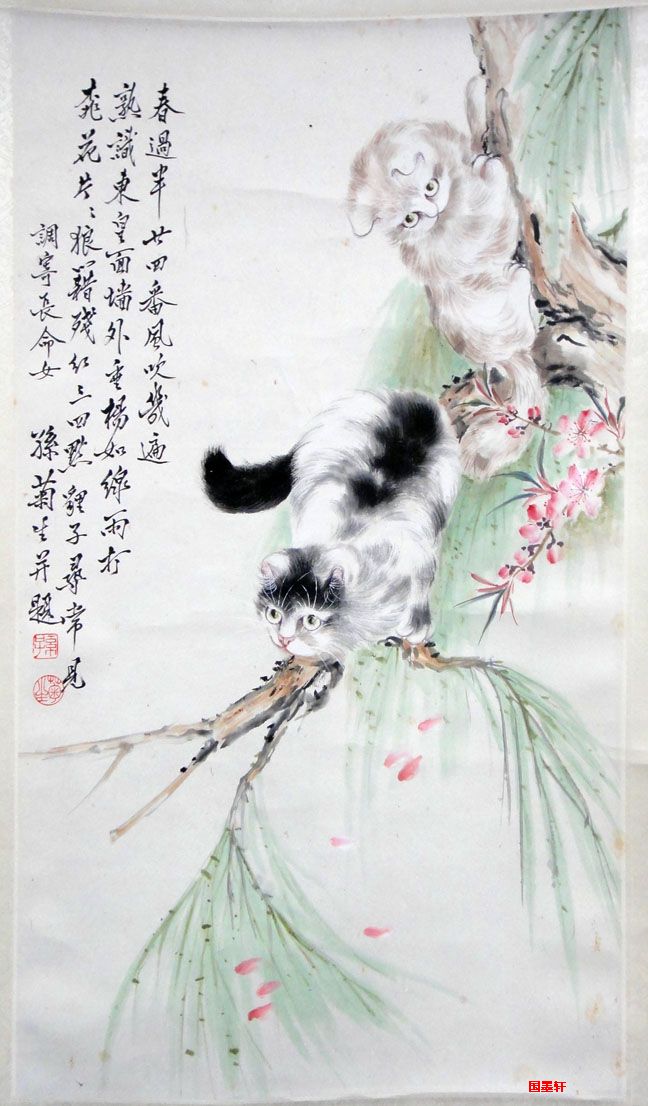 春過半廿四番風吹幾遍
熟識東皇面墙外垂楊如線雨打
桃花片〻狼籍殘红三四點貍子尋常見
調寄長命女
孫菊生并題
国墨轩